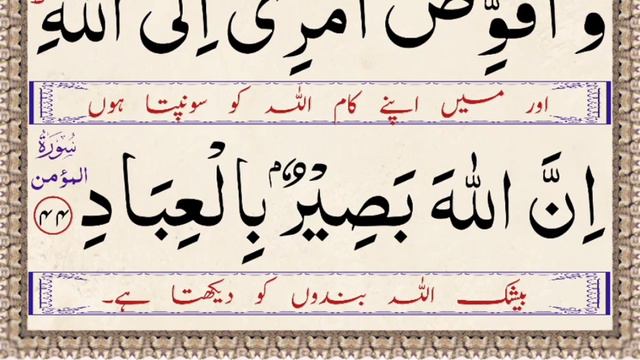 وَ اُفَوِّضُ اَمْرِیْ اِلَی اللّٰهِ
اور میں اپنے کام اللہ کو سونپتا ہوں
اِنَّ اللّٰهَ بَصِیْرٌۢ بِالْعِبَادِ
سُوْرَةُ
المؤمن
۴۴
بیشک اللہ بندوں کو دیکھتا ہے۔